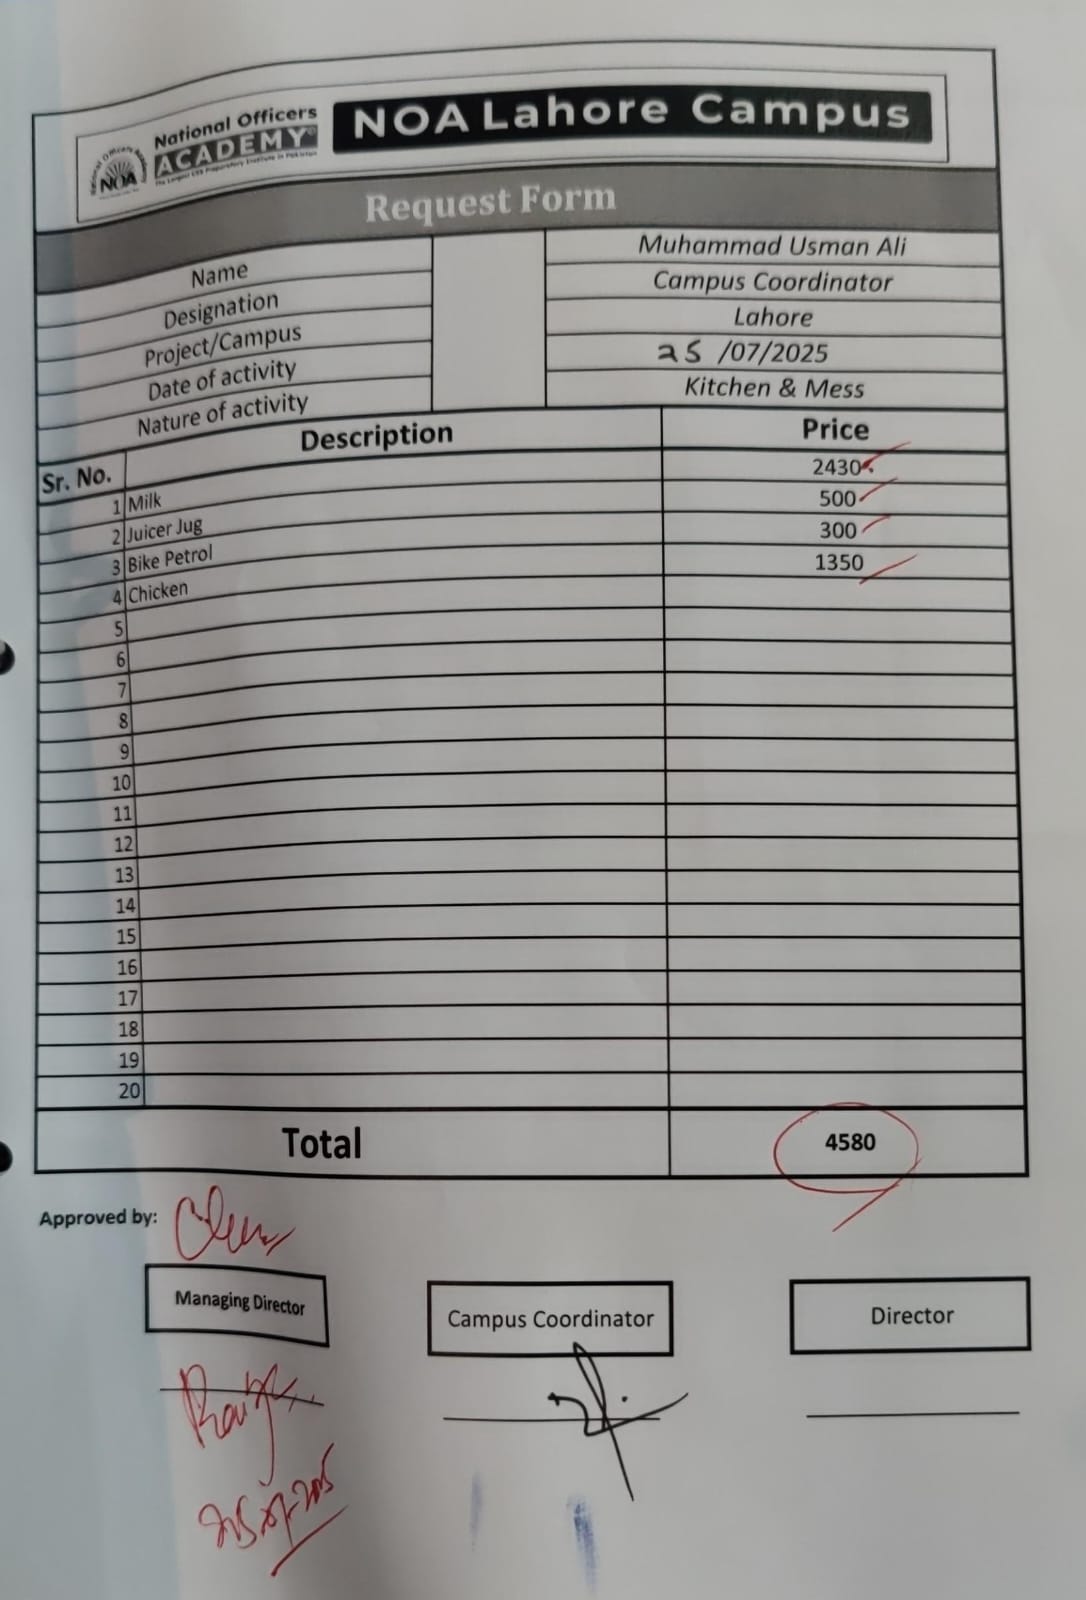 National Officers
ACADEMY
The Largest CSS Preparatory Institute in Pakistan
NOA
NOA Lahore Campus
Request Form
Name Muhammad Usman Ali
Designation Campus Coordinator
Project/Campus Lahore
Date of activity 25 /07/2025
Nature of activity Kitchen & Mess
Sr. No. Description Price
1 Milk 2430
2 Juicer Jug 500
3 Bike Petrol 300
4 Chicken 1350
5
6
7
8
9
10
11
12
13
14
15
16
17
18
19
20
Total 4580
Approved by:
Managing Director Campus Coordinator Director